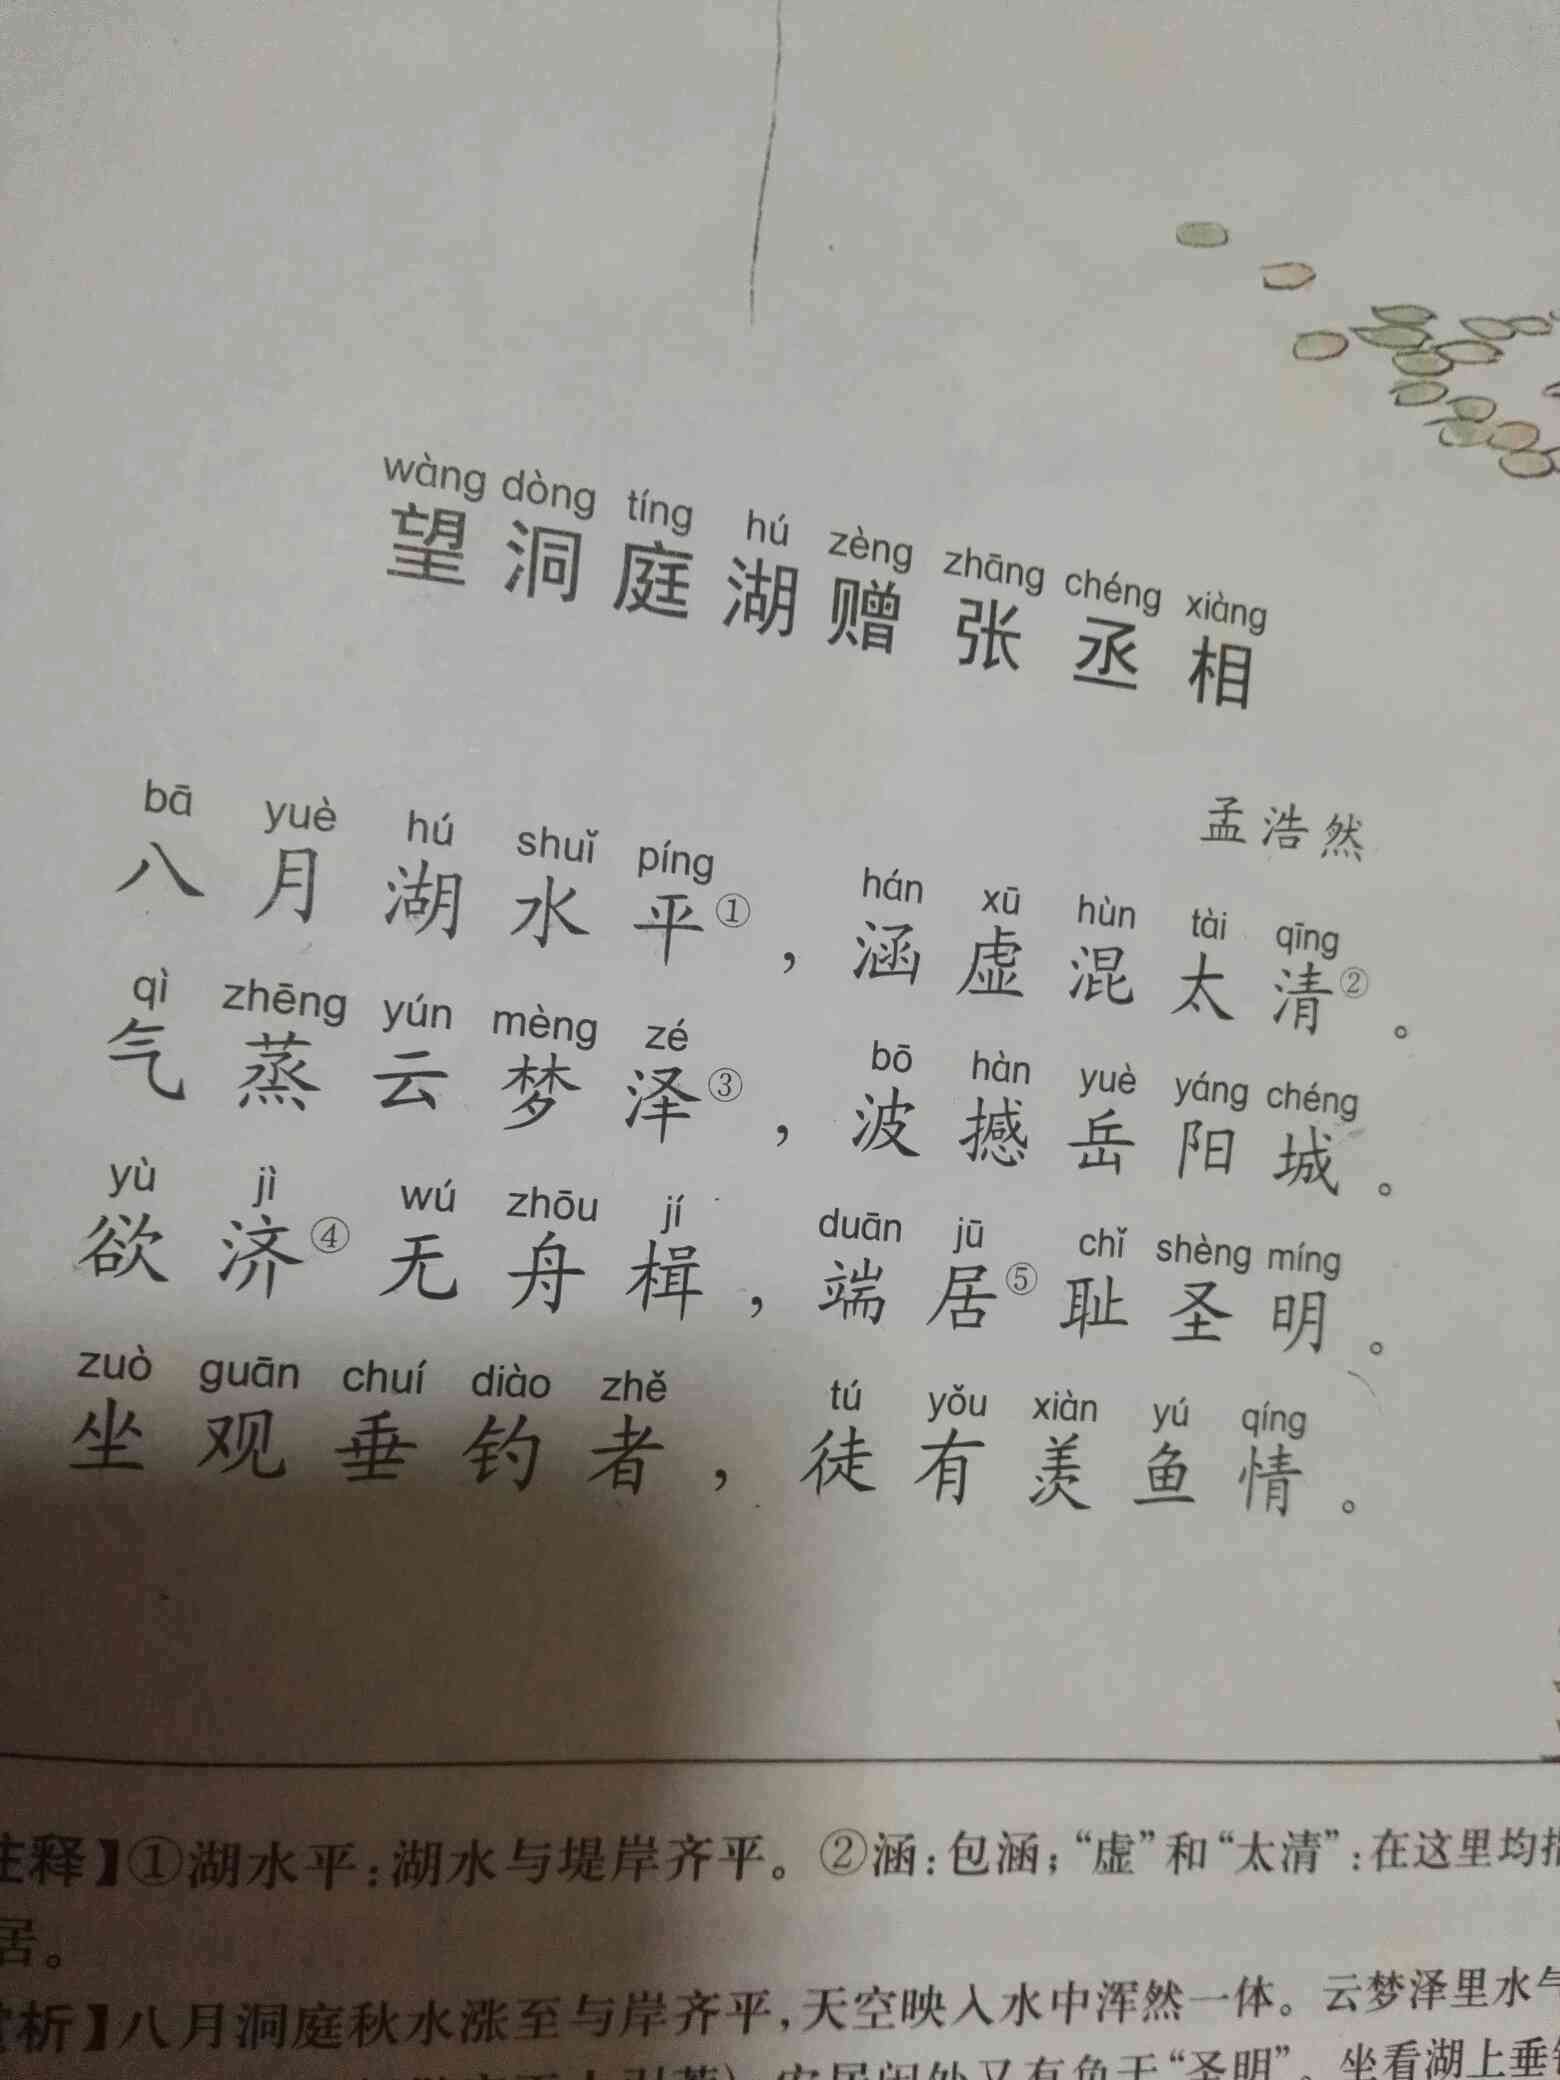 wàng dòng tíng hú zèng zhāng chéng xiàng
望洞庭湖赠张丞相
孟浩然
bā yuè hú shuǐ píng hán xū hùn tài qīng
八月湖水平①，涵虚混太清②。
qì zhēng yún mèng zé bō hàn yuè yáng chéng
气蒸云梦泽③，波撼岳阳城。
yù jì wú zhōu jí duān jū chǐ shèng míng
欲济④无舟楫，端居⑤耻圣明。
zuò guān chuí diào zhě tú yǒu xiàn yú qíng
坐观垂钓者，徒有羡鱼情。
注释】①湖水平：湖水与堤岸齐平。②涵：包涵；“虚”和“太清”：在这里均指
居。
赏析】八月洞庭秋水涨至与岸齐平，天空映入水中浑然一体。云梦泽里水气
安居闲处又有负于“圣明”。坐看湖上垂钓